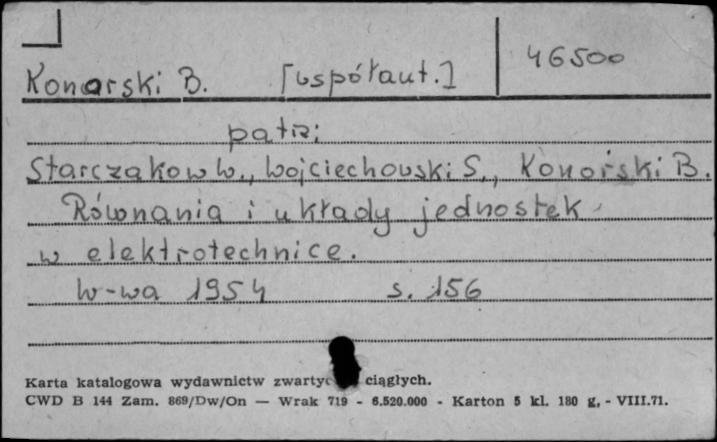 46500
Konarski B. [współaut.]
patrz:
Starczakow W., Wojciechowski S., Konarski B.
Równania i układy jednostek
w elektrotechnice.
W-wa 1954 s. 156
Karta katalogowa wydawnictw zwartyc ciągłych.
CWD B 144 Zam. 869/Dw/On — Wrak 719 - 6.520.000 - Karton 5 kl. 180 g. - VIII.71.